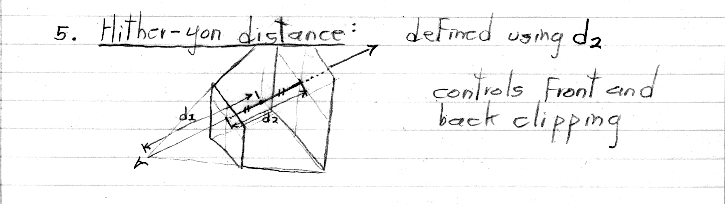 5. Hither-yon distance: defined using d2
controls Front and
back clipping
d1
d2